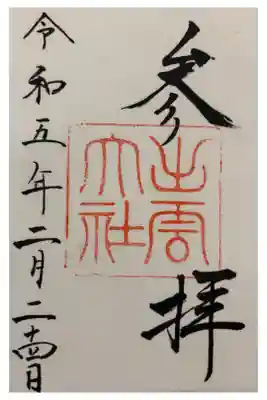 参拝
出雲大社
令和五年二月二十四日